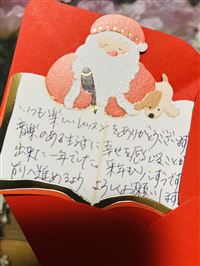 いつも楽しいレッスンをありがとうございます
音楽のある生活に幸せを感じることが
出来た一年でした 来年も少しずつ
前へ進めるよう よろしくお願いします